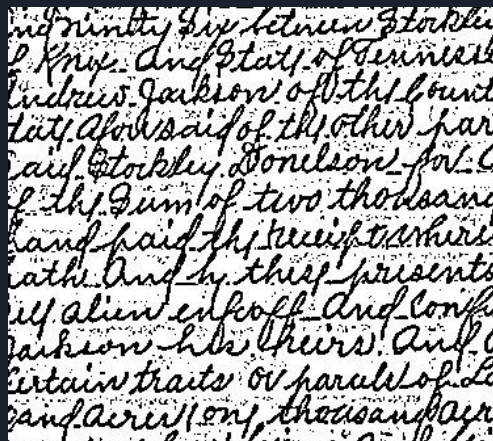 and Ninety Six between Stockley
of Knox And State of Tennessee
Andrew Jackson of the Count
State Aforesaid of the other par
Said Stockley Donelson for
of the Sum of two thousand
hand paid the receipt where
hath And by these presents
sell alien enfeoff And Confi
Jackson his heirs And
Certain traits or parcels of La
sand Acres one thousand Acr